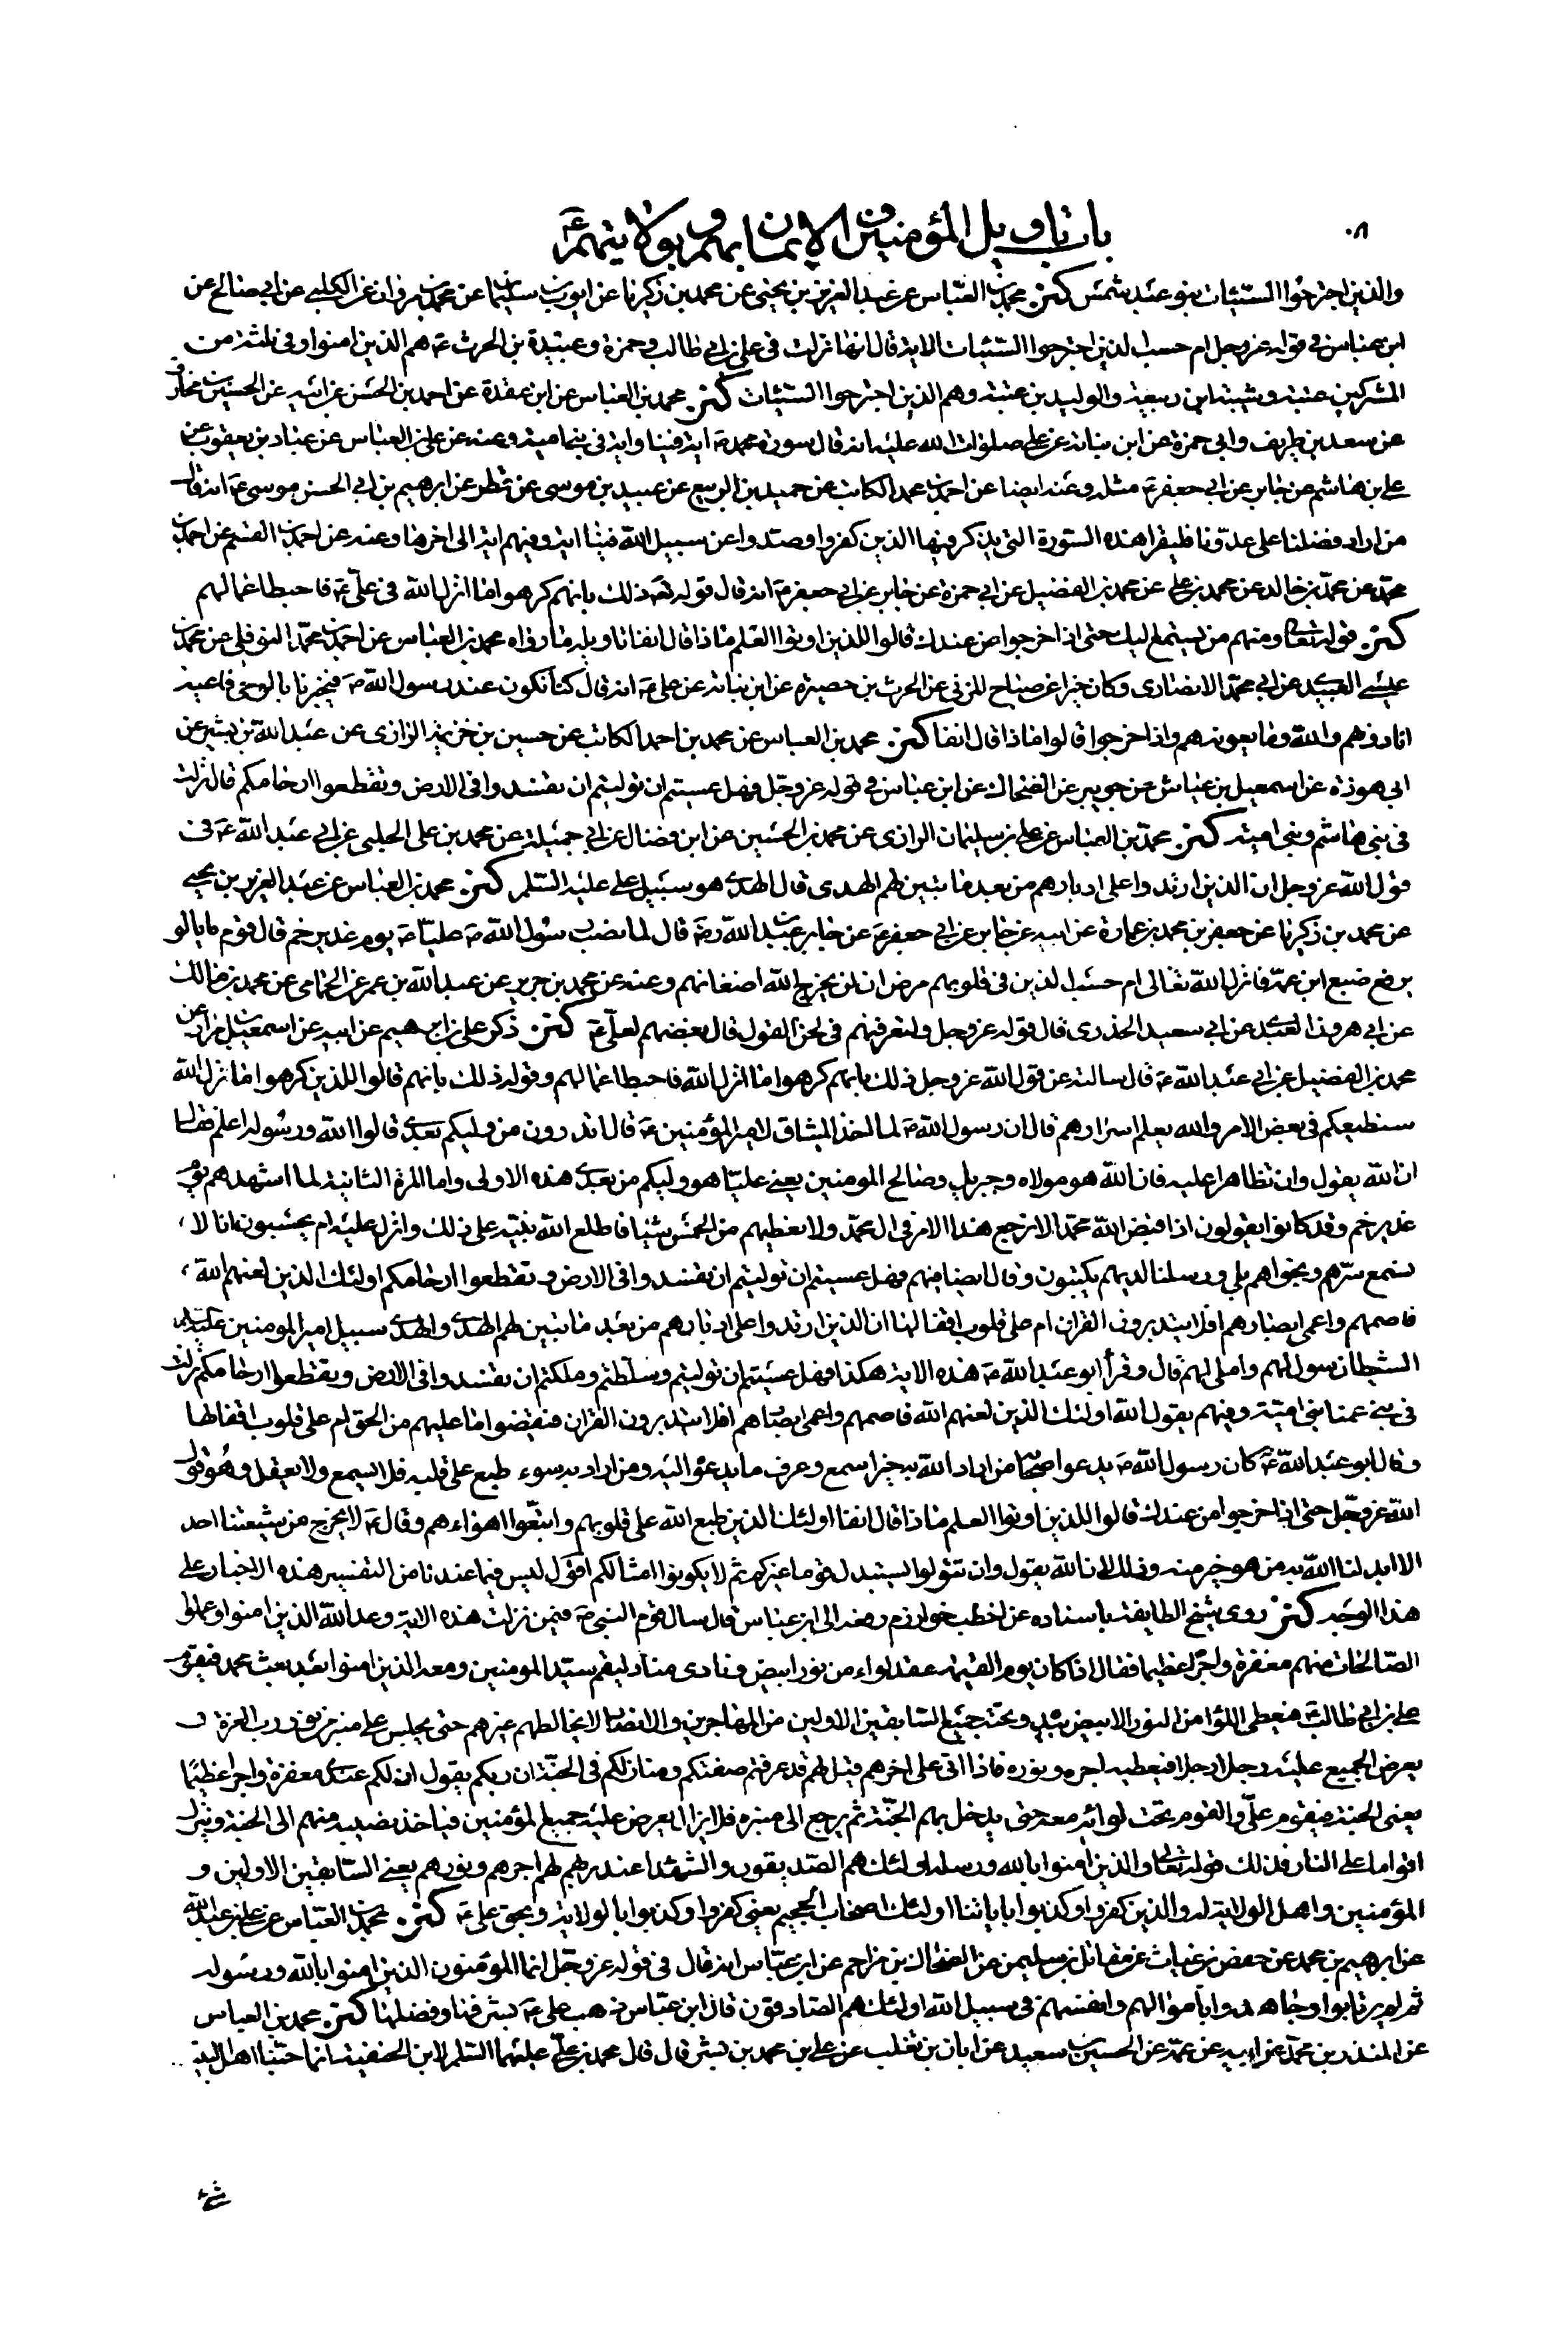 ٨٠
باب تاويل المؤمنين والايمان بهم وبولايتهم ع
والذين اجترحوا السيئات بنو عبد شمس كنز محمد بن العباس عن عبد العزيز بن يحيى عن محمد بن زكريا عن ايوب بن سليمان عن محمد بن مروان عن الكلبي عن ابي صالح عن
ابن عباس في قوله عز وجل ام حسب الذين اجترحوا السيئات الاية قال انها نزلت في علي بن ابي طالب وحمزة وعبيدة بن الحرث ع هم الذين امنوا وفي ثلثة من
المشركين عتبة وشيبة ابن ربيعة والوليد بن عتبة وهم الذين اجترحوا السيئات كنز محمد بن العباس عن ابن عقدة عن احمد بن الحسن عن ابيه عن الحسين بن مخارق
عن سعد بن طريف وابي حمزة عن ابن نباتة عن علي صلوات الله عليه انه قال سورة محمد ص اية فينا واية في بني امية وعنه عن علي بن العباس عن عباد بن يعقوب عن
علي بن هاشم عن جابر عن ابي جعفر ع مثله وعنه ايضا عن احمد بن محمد الكاتب عن حميد بن الربيع عن عبيد بن موسى عن قطر عن ابرهيم بن ابي الحسن موسى ع انه قال
من اراد فضلنا على عدونا فليقرا هذه السورة التي يذكر فيها الذين كفروا وصدوا عن سبيل الله فينا اية وفيهم اية الى اخرها وعنه عن احمد بن القسم عن احمد بن
محمد عن محمد بن خالد عن محمد بن علي عن محمد بن الفضيل عن ابي حمزة عن جابر عن ابي جعفر ع انه قال قوله تعه ذلك بانهم كرهوا ما انزل الله في علي ع فاحبط اعمالهم
كنز قوله تعالى ومنهم من يستمع اليك حتى اذا خرجوا من عندك قالوا للذين اوتوا العلم ماذا قال انفا تاويله ما رواه محمد بن العباس عن احمد بن محمد النوفلي عن محمد بن
عيسى العبيدي عن ابي محمد الانصاري وكان خيرا عن صباح المزني عن الحرث بن حصيرة عن ابن نباتة عن علي ع انه قال كنا نكون عند رسول الله ص فيخبرنا بالوحي فاعيه
انا دونهم والله وما يعونه هم واذا خرجوا قالوا ماذا قال انفا كنز محمد بن العباس عن محمد بن احمد الكاتب عن حسين بن خزيمة الرازي عن عبد الله بن بشير عن
ابي هوذة عن اسمعيل بن عياش عن جويبر عن الضحاك عن ابن عباس في قوله عز وجل فهل عسيتم ان توليتم ان تفسدوا في الارض وتقطعوا ارحامكم قال نزلت
في بني هاشم وبني امية كنز محمد بن العباس عن علي بن سليمان الرازي عن محمد بن الحسين عن ابن فضال عن ابي جميلة عن محمد بن علي الحلبي عن ابي عبد الله ع في
قول الله عز وجل ان الذين ارتدوا على ادبارهم من بعد ما تبين لهم الهدى قال الهدى هو سبيل علي عليه السلم كنز محمد بن العباس عن عبد العزيز بن يحيى
عن محمد بن زكريا عن جعفر بن محمد بن عمارة عن ابيه عن جابر عن ابي جعفر ع عن جابر بن عبد الله رضه قال لما نصب رسول الله ص عليا ع يوم غدير خم قال قوم ما يالو
برفع ضبع ابن عمه فانزل الله تعالى ام حسب الذين في قلوبهم مرض ان لن يخرج الله اضغانهم وعنه عن محمد بن جرير عن عبد الله بن عمر عن الحمامي عن محمد بن مالك
عن ابي هرون العبدي عن ابي سعيد الخدري قال قوله عز وجل ولتعرفنهم في لحن القول قال بغضهم لعلي ع كنز ذكر علي بن ابرهيم عن ابيه عن اسمعيل بن مرار عن
محمد بن الفضيل عن ابي عبد الله ع قال سالته عن قول الله عز وجل ذلك بانهم كرهوا ما انزل الله فاحبط اعمالهم وقوله ذلك بانهم قالوا للذين كرهوا ما نزل الله
سنطيعكم في بعض الامر والله يعلم اسرارهم قال ان رسول الله ص لما اخذ الميثاق لامير المؤمنين ع قال اتدرون من وليكم بعدي قالوا الله ورسوله اعلم فقال
ان الله يقول وان تظاهرا عليه فان الله هو مولاه وجبريل وصالح المومنين يعني عليا هو وليكم من بعدي هذه الاولى واما المرة الثانية لما اشهدهم يوم
غدير خم وقد كانوا يقولون اذا قبض الله محمدا لا نرجع هذا الامر في ال محمد ولا نعطيهم من الخمس شيئا فاطلع الله نبيه على ذلك وانزل عليه ام يحسبون انا لا
نسمع سرهم ونجواهم بلى ورسلنا لديهم يكتبون وقال ايضا فيهم فهل عسيتم ان توليتم ان تفسدوا في الارض وتقطعوا ارحامكم اولئك الذين لعنهم الله
فاصمهم واعمى ابصارهم افلا يتدبرون القران ام على قلوب اقفالها ان الذين ارتدوا على ادبارهم من بعد ما تبين لهم الهدى والهدى سبيل امير المومنين عليه السلم
الشيطان سول لهم واملى لهم قال وقرأ ابو عبد الله ع هذه الاية هكذا فهل عسيتم ان توليتم وسلطتم وملكتم ان تفسدوا في الارض وتقطعوا ارحامكم نزلت
في بني عمنا بني امية وفيهم يقول الله اولئك الذين لعنهم الله فاصمهم واعمى ابصارهم افلا يتدبرون القران فيقضوا ما عليهم من الحق ام على قلوب اقفالها
وقال ابو عبد الله ع كان رسول الله ص يدعوا اصحابه من اراد الله به خيرا سمع وعرف ما يدعوه اليه ومن اراد به سوء طبع على قلبه فلا يسمع ولا يعقل وهو قول
الله عز وجل حتى اذا خرجوا من عندك قالوا للذين اوتوا العلم ماذا قال انفا اولئك الذين طبع الله على قلوبهم واتبعوا اهواءهم وقال ع لا يخرج من شيعتنا احد
الا ابدلنا الله به من هو خير منه وذلك لان الله يقول وان تتولوا يستبدل قوما غيركم ثم لا يكونوا امثالكم اقول ليس فيما عندنا من التفسير هذه الاخبار على
هذا الوجه كنز روى شيخ الطايفة باسناده عن اخطب خوارزم رفعه الى ابن عباس قال سال قوم النبي ص فيمن نزلت هذه الاية وعد الله الذين امنوا وعملوا
الصالحات منهم مغفرة واجرا عظيما فقال اذا كان يوم القيمة عقد لواء من نور ابيض ونادى مناد ليقم سيد المومنين ومعه الذين امنوا بعد بعث محمد فيقوم
علي بن ابي طالب ع فيعطى اللواء من النور الابيض بيده وتحته جميع السابقين الاولين من المهاجرين والانصار لا يخالطهم غيرهم حتى يجلس على منبر من نور رب العزة و
يعرض الجميع عليه رجلا رجلا فيعطيه اجره ونوره فاذا اتى على اخرهم قيل لهم قد عرفتم صفتكم ومنازلكم في الجنة ان ربكم يقول ان لكم عندي مغفرة واجرا عظيما
يعني الجنة فيقوم علي والقوم تحت لوائه معه حتى يدخل بهم الجنة ثم يرجع الى منبره فلا يزال يعرض عليه جميع المؤمنين فياخذ نصيبه منهم الى الجنة وينزل
اقواما على النار فذلك قوله تعالى والذين امنوا بالله ورسله اولئك هم الصديقون والشهدا عند ربهم لهم اجرهم ونورهم يعني السابقين الاولين و
المؤمنين واهل الولاية له والذين كفروا وكذبوا باياتنا اولئك اصحاب الجحيم يعني كفروا وكذبوا بالولاية وبحق علي ع كنز محمد بن العباس عن علي بن عبد الله
عن ابرهيم بن محمد عن حفص بن غياث عن مقاتل بن سليمن عن الضحاك بن مزاحم عن ابن عباس انه قال في قوله عز وجل انما المؤمنون الذين امنوا بالله ورسوله
ثم لم يرتابوا وجاهدوا باموالهم وانفسهم في سبيل الله اولئك هم الصادقون قال ابن عباس ذهب علي ع بشرفها وفضلها كنز محمد بن العباس
عن المنذر بن محمد عن ابيه عن عمه عن الحسين بن سعيد عن ابان بن تغلب عن علي بن محمد بن بشر قال قال محمد بن علي عليهما السلم لابن الحنفية انما حبنا اهل البيت
شئ